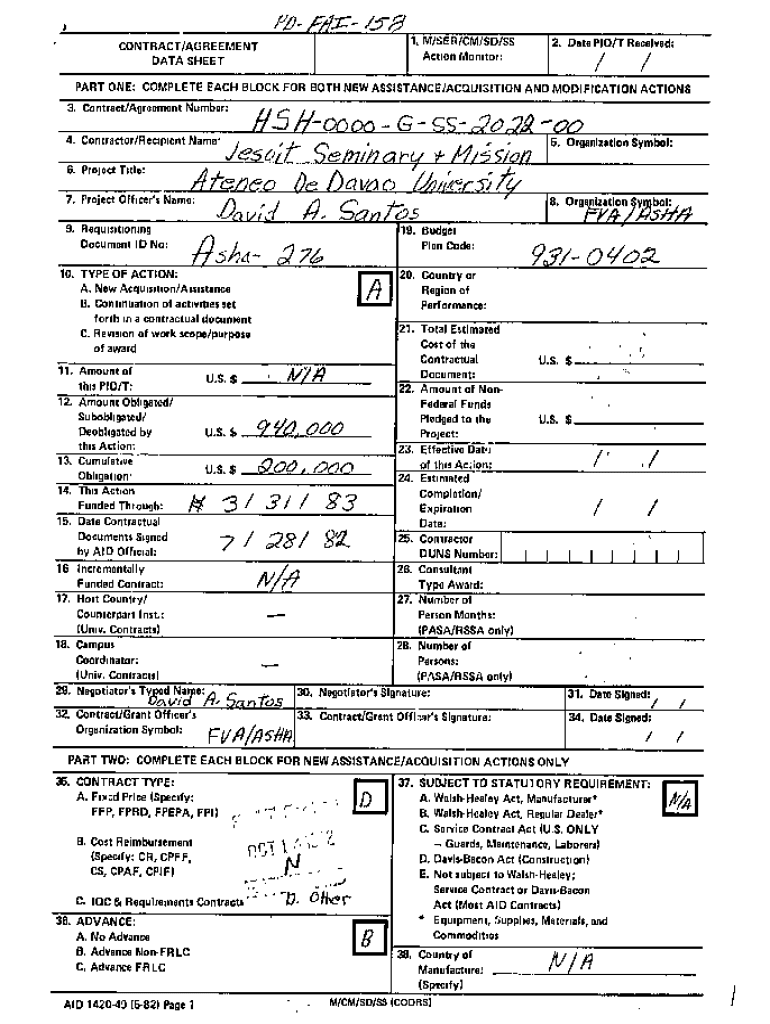 PD-FAI-158
CONTRACT/AGREEMENT
DATA SHEET
1. M/SER/CM/SD/SS
Action Monitor:
2. Date PIO/T Received:
/ /
PART ONE: COMPLETE EACH BLOCK FOR BOTH NEW ASSISTANCE/ACQUISITION AND MODIFICATION ACTIONS
3. Contract/Agreement Number:
HSH-0000-G-SS-2022-00
4. Contractor/Recipient Name:
Jesuit Seminary + Mission
5. Organization Symbol:
6. Project Title:
Ateneo De Davao University
7. Project Officer's Name:
David A. Santos
8. Organization Symbol:
FVA/ASHA
9. Requisitioning
Document ID No:
Asha-276
19. Budget
Plan Code:
931-0402
10. TYPE OF ACTION:
A. New Acquisition/Assistance
B. Continuation of activities set
forth in a contractual document
C. Revision of work scope/purpose
of award
A
20. Country or
Region of
Performance:
21. Total Estimated
Cost of the
Contractual
Document:
U.S. $
11. Amount of
this PIO/T:
U.S. $ N/A
22. Amount of Non-
Federal Funds
Pledged to the
Project:
U.S. $
12. Amount Obligated/
Subobligated/
Deobligated by
this Action:
U.S. $ 940,000
13. Cumulative
Obligation:
U.S. $ 200,000
23. Effective Date
of this Action:
/ /
14. This Action
Funded Through:
3/ 31/ 83
24. Estimated
Completion/
Expiration
Date:
/ /
15. Date Contractual
Documents Signed
by AID Official:
7/ 28/ 82
25. Contractor
DUNS Number:
16 Incrementally
Funded Contract:
N/A
26. Consultant
Type Award:
17. Host Country/
Counterpart Inst.:
(Univ. Contracts)
—
27. Number of
Person Months:
(PASA/RSSA only)
18. Campus
Coordinator:
(Univ. Contracts)
—
28. Number of
Persons:
(PASA/RSSA only)
29. Negotiator's Typed Name:
David A. Santos
30. Negotiator's Signature:
31. Date Signed:
/ /
32. Contract/Grant Officer's
Organization Symbol:
FVA/ASHA
33. Contract/Grant Officer's Signature:
34. Date Signed:
/ /
PART TWO: COMPLETE EACH BLOCK FOR NEW ASSISTANCE/ACQUISITION ACTIONS ONLY
35. CONTRACT TYPE:
A. Fixed Price (Specify:
FFP, FPRD, FPEPA, FPI)
B. Cost Reimbursement
(Specify: CR, CPFF,
CS, CPAF, CPIF)
N
C. IQC & Requirements Contracts
D. Other
D
37. SUBJECT TO STATUTORY REQUIREMENT:
A. Walsh-Healey Act, Manufacturer*
B. Walsh-Healey Act, Regular Dealer*
C. Service Contract Act (U.S. ONLY
– Guards, Maintenance, Laborers)
D. Davis-Bacon Act (Construction)
E. Not subject to Walsh-Healey;
Service Contract or Davis-Bacon
Act (Most AID Contracts)
* Equipment, Supplies, Materials, and
Commodities
N/A
36. ADVANCE:
A. No Advance
B. Advance Non-FRLC
C. Advance FRLC
B
38. Country of
Manufacture:
(Specify)
N/A
AID 1420-49 (6-82) Page 1
M/CM/SD/SS (CODRS)